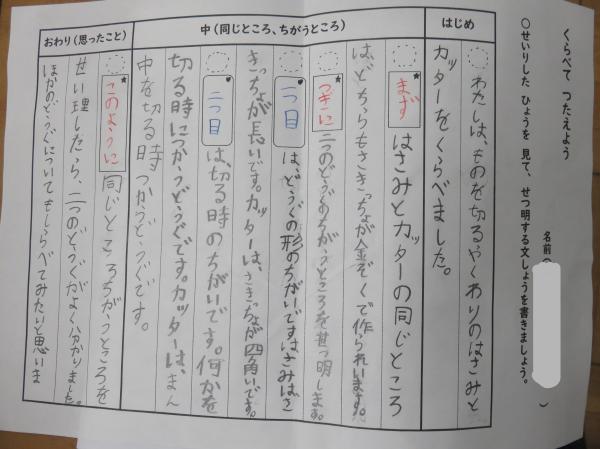 くらべて つたえよう
○せいりした ひょうを 見て、せつ明する文しょうを書きましょう。
名前（ ）
はじめ
わたしは、ものを切るやくわりのはさみと
カッターをくらべました。
中（同じところ、ちがうところ）
まず はさみとカッターの同じところ
は、どちらもさきっちょが金ぞくで作られいます。
つぎに 二つのどうぐのちがうところをせつ明します。
一つ目 は、どうぐの形のちがいですはさみはさ
きっちょが長いです。カッターは、さきっちょが四角いです。
二つ目 は、切る時のちがいです。何かを
切る時につかうどうぐです。カッターは、まん
中を切る時つかうどうぐです。
おわり（思ったこと）
このように 同じところちがうところを
せい理したら、二つのどうぐがよく分かりました。
ほかのどうぐについてもしらべてみたいと思いま